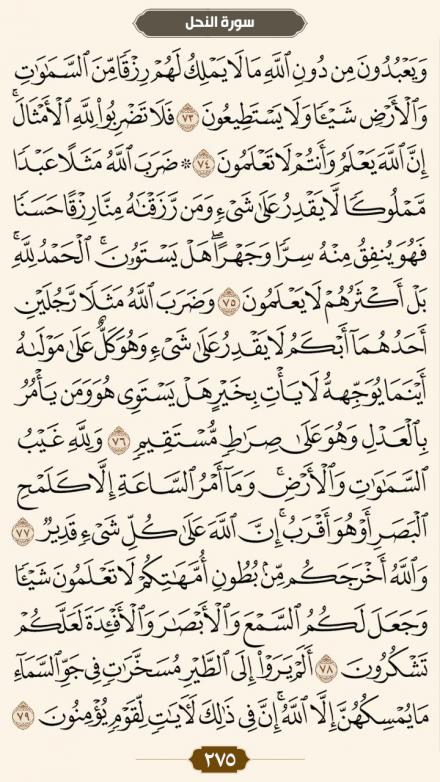 سورة النحل
وَيَعْبُدُونَ مِن دُونِ ٱللَّهِ مَا لَا يَمْلِكُ لَهُمْ رِزْقًا مِّنَ ٱلسَّمَٰوَٰتِ
وَٱلْأَرْضِ شَيْـًٔا وَلَا يَسْتَطِيعُونَ ٧٣ فَلَا تَضْرِبُوا۟ لِلَّهِ ٱلْأَمْثَالَ ۚ
إِنَّ ٱللَّهَ يَعْلَمُ وَأَنتُمْ لَا تَعْلَمُونَ ٧٤ ۞ ضَرَبَ ٱللَّهُ مَثَلًا عَبْدًا
مَّمْلُوكًا لَّا يَقْدِرُ عَلَىٰ شَىْءٍ وَمَن رَّزَقْنَٰهُ مِنَّا رِزْقًا حَسَنًا
فَهُوَ يُنفِقُ مِنْهُ سِرًّا وَجَهْرًا ۖ هَلْ يَسْتَوُۥنَ ۚ ٱلْحَمْدُ لِلَّهِ ۚ
بَلْ أَكْثَرُهُمْ لَا يَعْلَمُونَ ٧٥ وَضَرَبَ ٱللَّهُ مَثَلًا رَّجُلَيْنِ
أَحَدُهُمَآ أَبْكَمُ لَا يَقْدِرُ عَلَىٰ شَىْءٍ وَهُوَ كَلٌّ عَلَىٰ مَوْلَىٰهُ
أَيْنَمَا يُوَجِّههُّ لَا يَأْتِ بِخَيْرٍ هَلْ يَسْتَوِى هُوَ وَمَن يَأْمُرُ
بِٱلْعَدْلِ وَهُوَ عَلَىٰ صِرَٰطٍ مُّسْتَقِيمٍ ٧٦ وَلِلَّهِ غَيْبُ
ٱلسَّمَٰوَٰتِ وَٱلْأَرْضِ ۚ وَمَآ أَمْرُ ٱلسَّاعَةِ إِلَّا كَلَمْحِ
ٱلْبَصَرِ أَوْ هُوَ أَقْرَبُ ۚ إِنَّ ٱللَّهَ عَلَىٰ كُلِّ شَىْءٍ قَدِيرٌ ٧٧
وَٱللَّهُ أَخْرَجَكُم مِّنۢ بُطُونِ أُمَّهَٰتِكُمْ لَا تَعْلَمُونَ شَيْـًٔا
وَجَعَلَ لَكُمُ ٱلسَّمْعَ وَٱلْأَبْصَٰرَ وَٱلْأَفْـِٔدَةَ لَعَلَّكُمْ
تَشْكُرُونَ ٧٨ أَلَمْ يَرَوْا۟ إِلَى ٱلطَّيْرِ مُسَخَّرَٰتٍ فِى جَوِّ ٱلسَّمَآءِ
مَا يُمْسِكُهُنَّ إِلَّا ٱللَّهُ ۗ إِنَّ فِى ذَٰلِكَ لَـَٔايَٰتٍ لِّقَوْمٍ يُؤْمِنُونَ ٧٩
٢٧٥